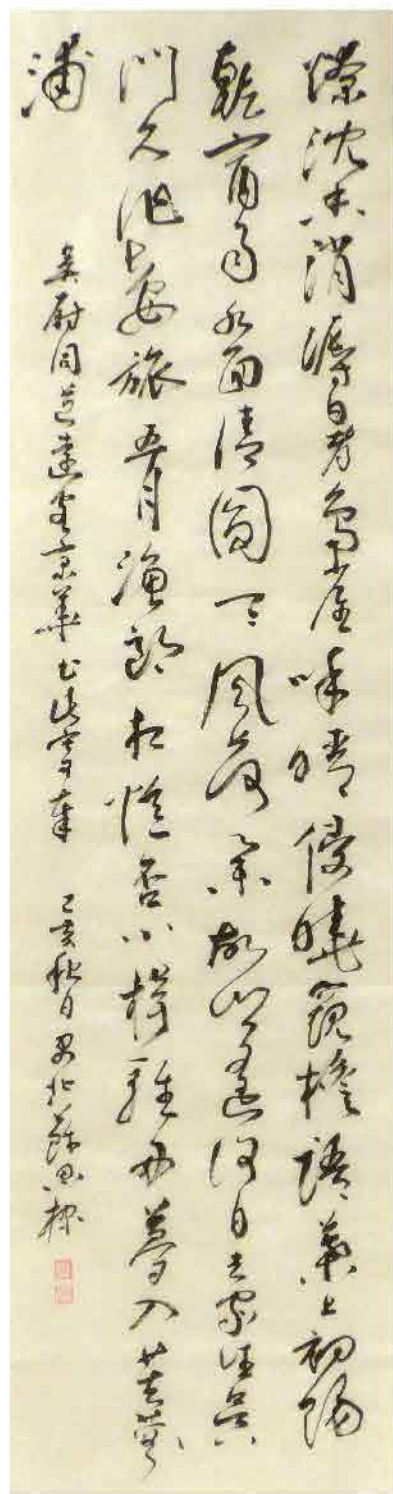 燎沈香消溽暑鳥雀呼晴侵曉窺檐語葉上初陽
乾宿雨水面清圓一一風荷舉故鄉遙何日去家住吳
門久作長安旅五月漁郎相憶否小楫輕舟夢入芙蓉
浦
同志遠客京華書此寄奉 己亥秋日